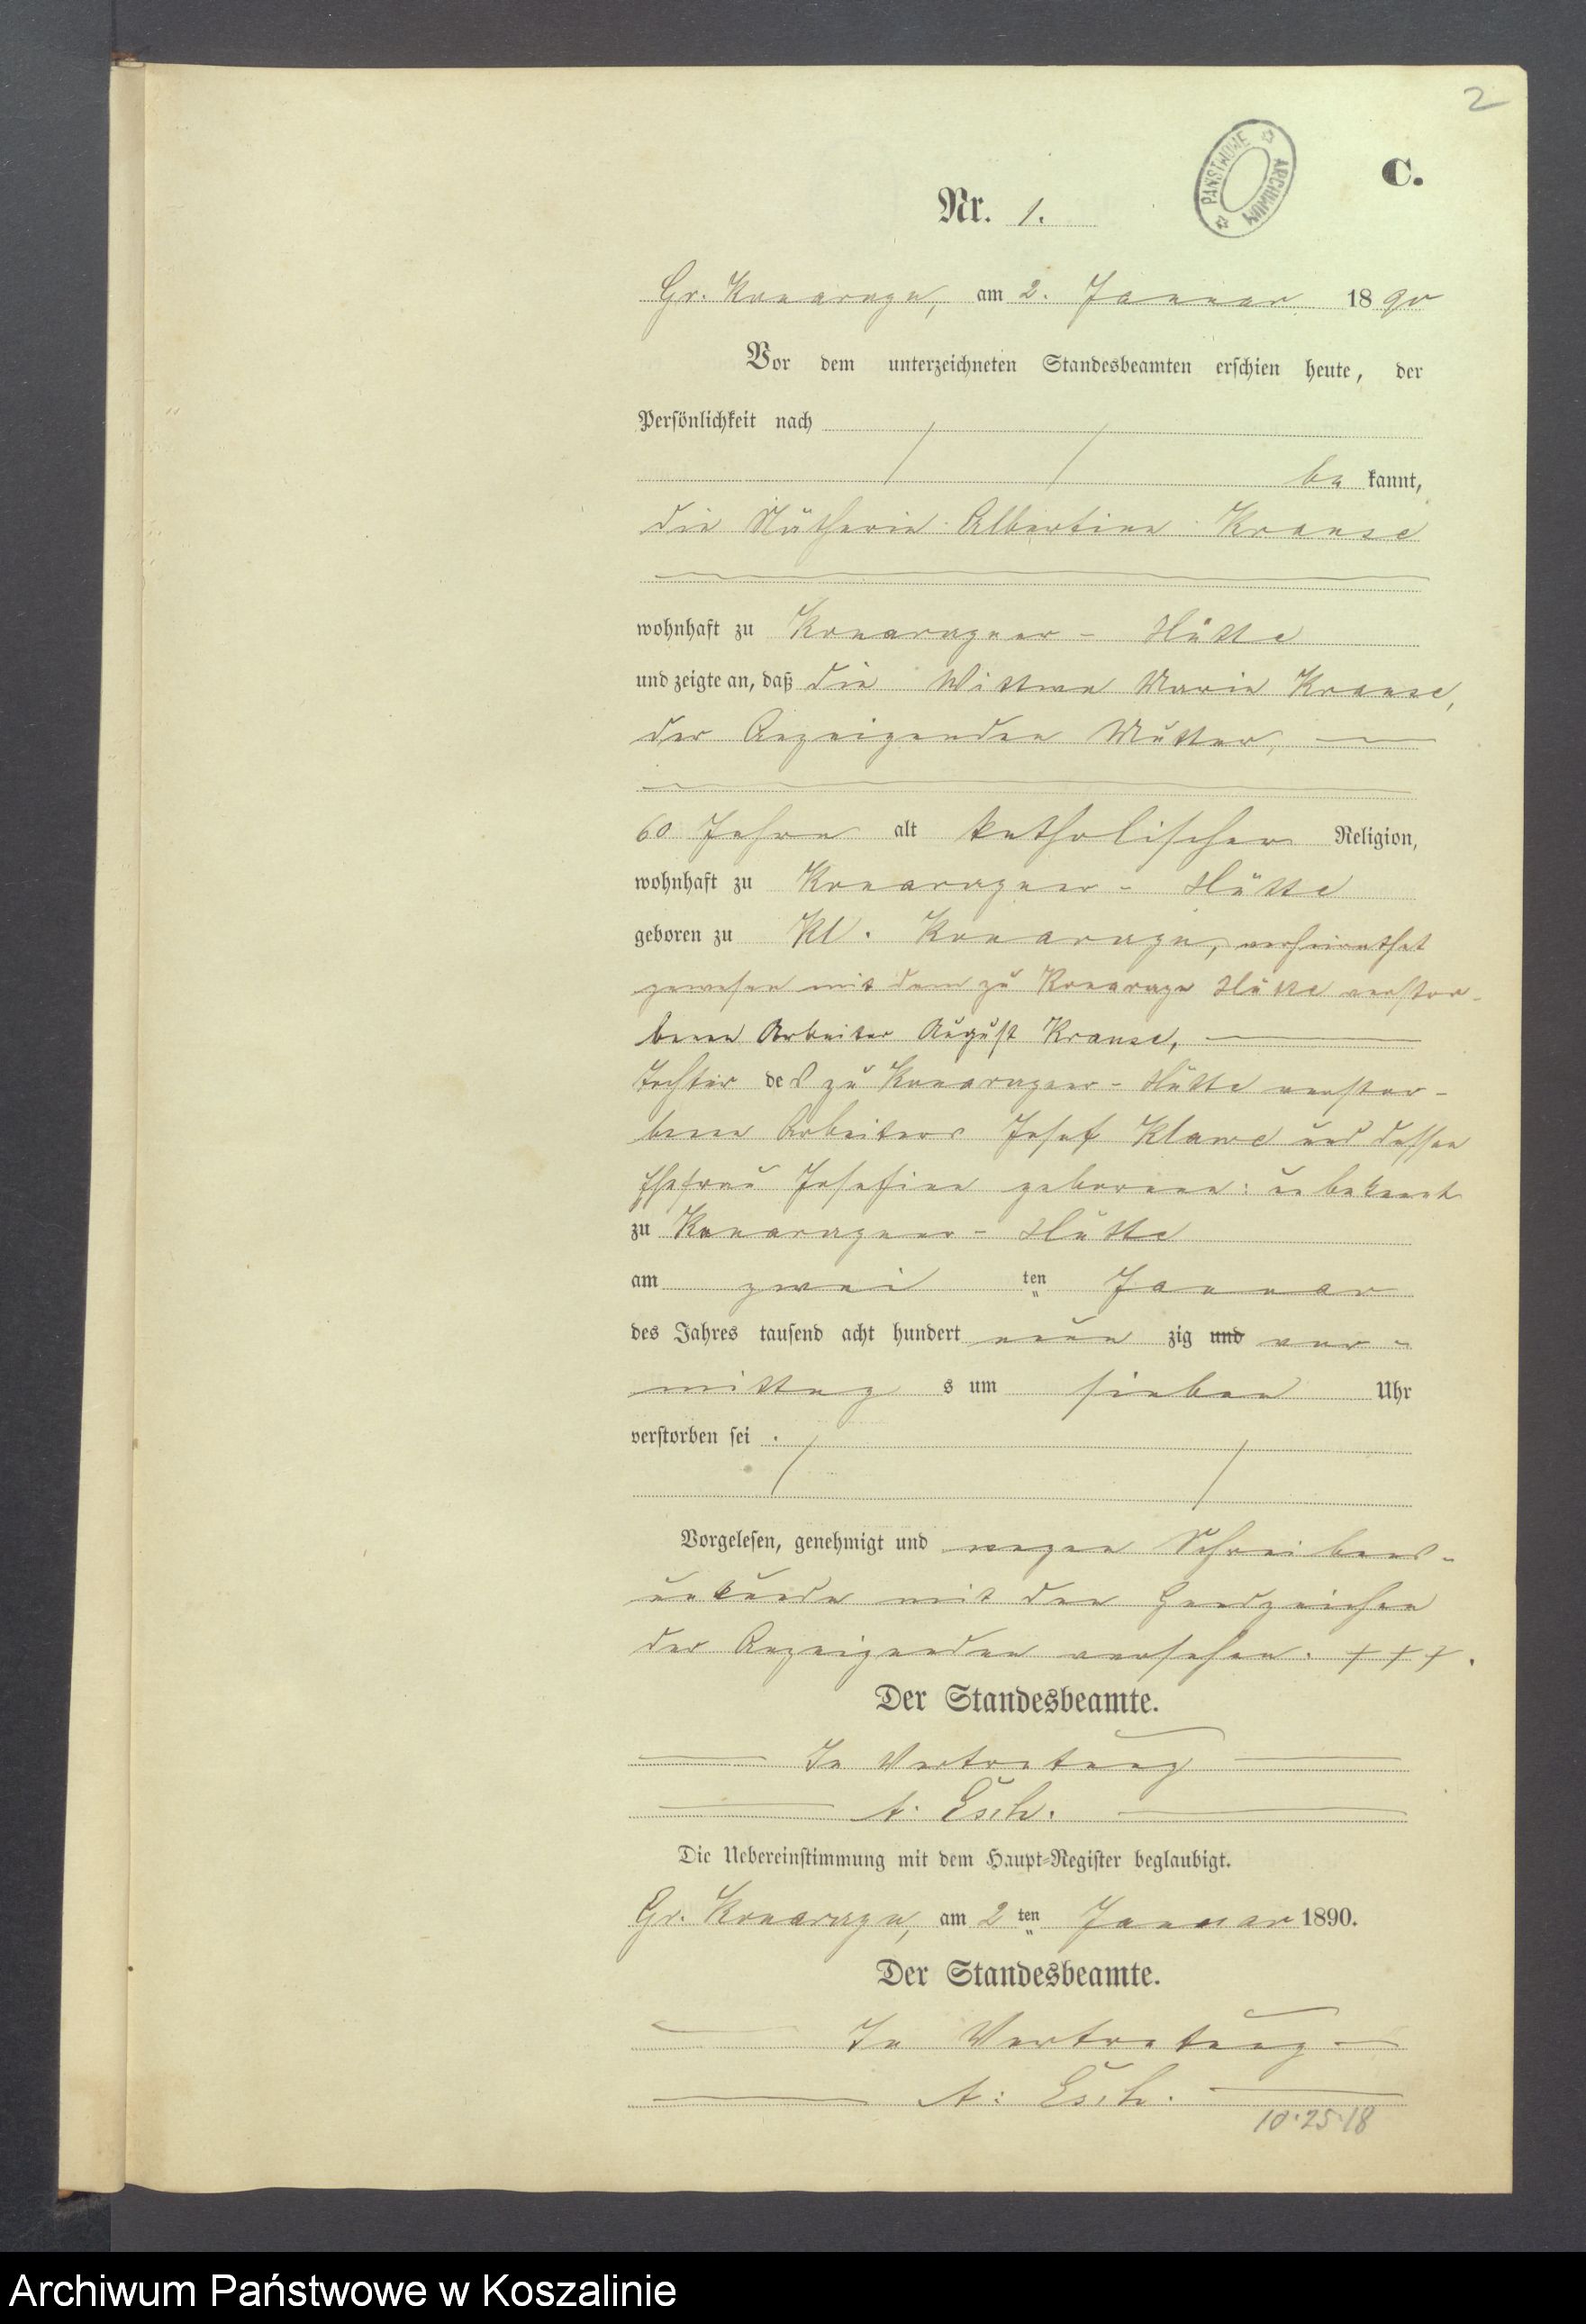 2
PAŃSTWOWE ARCHIWUM
C.
Nr. 1.
Gr. Konarczyn, am 2. Januar 1890
Vor dem unterzeichneten Standesbeamten erschien heute, der
Persönlichkeit nach
be kannt,
die Nätherin Albertine Krause
wohnhaft zu Konarczyner - Hütte
und zeigte an, daß die Wittwe Marie Krause,
der Anzeigenden Mutter,
60 Jahre alt katholischer Religion,
wohnhaft zu Konarczyner - Hütte
geboren zu Kl. Konarczyn, verheirathet
gewesen mit dem zu Konarczyn Hütte verstor-
benen Arbeiter August Krause,
Tochter des zu Konarczyner - Hütte verstor-
benen Arbeiters Josef Klawe und dessen
Ehefrau Josefine geborene: unbekannt
zu Konarczyner - Hütte
am zwei ten Januar
des Jahres tausend acht hundert neun zig und vor -
mittag s um sieben Uhr
verstorben sei .
Vorgelesen, genehmigt und wegen Schreibens-
unkunde mit den Handzeichen
der Anzeigenden versehen. +++.
Der Standesbeamte.
In Vertretung
A: Esch.
Die Uebereinstimmung mit dem Haupt-Register beglaubigt.
Gr. Konarczyn, am 2 ten Januar 1890.
Der Standesbeamte.
In Vertretung
A: Esch.
10·25·18
Archiwum Państwowe w Koszalinie